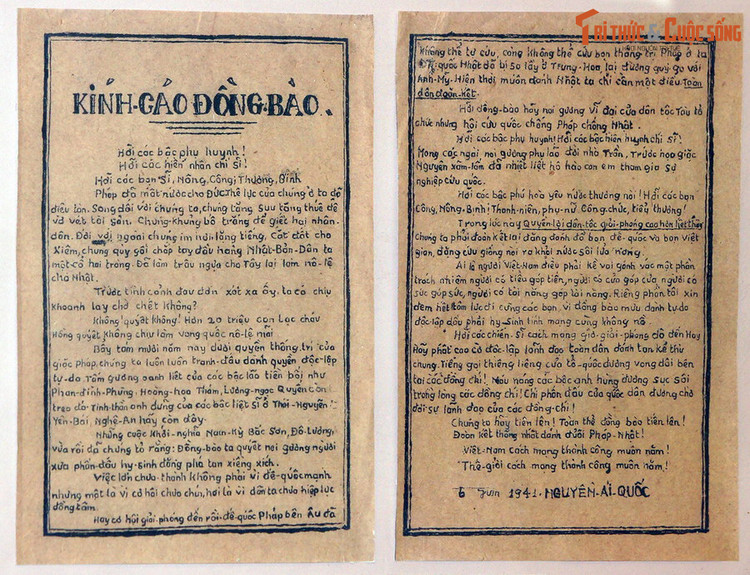 KÍNH-CÁO ĐỒNG-BÀO.
Hỡi các bậc phụ huynh!
Hỡi các hiền nhân chí sĩ!
Hỡi các bạn SĨ, Nông, Công, Thương, Binh
Pháp đã mất nước cho ĐỨC. Thế lực của chúng ở ta đã
điêu tàn. Song đối với chúng ta, chúng tăng sưu tăng thuế để
vơ vét tài sản. Chúng khủng bố trắng để giết hại nhân-
dân. Đối với ngoài chúng im hơi lặng tiếng, cắt đất cho
Xiêm, chúng quỳ gối chắp tay đầu hàng Nhật-Bản. Dân ta
một cổ hai tròng. Đã làm trâu ngựa cho Tây lại làm nô-lệ
cho Nhật.
Trước tình cảnh đau đớn xót xa ấy, ta có chịu
khoanh tay chờ chết không?
Không! quyết không! Hơn 20 triệu con Lạc cháu
Hồng quyết không chịu làm vong quốc nô-lệ mãi
Bảy tám mươi năm nay dưới quyền thống trị của
giặc Pháp, chúng ta luôn luôn tranh-đấu dành quyền độc-lập
tự-do. Tấm gương oanh liệt của các bậc lão tiền bối như
Phan-đình-Phùng, Hoàng-hoa-Thám, Lương-ngọc-Quyến còn
treo đó. Tinh-thần anh dũng của các bậc liệt sĩ ở Thái-Nguyên
Yên-Bái, Nghệ-An hãy còn đây.
Những cuộc Khởi-nghĩa Nam-Kỳ, Bắc Sơn, Đô-Lương,
vừa rồi đã chứng tỏ rằng: Đồng-bào ta quyết noi gương người
xưa phấn-đấu hy-sinh đặng phá tan xiềng xích.
Việc lớn chưa thành không phải vì đế-quốc mạnh
nhưng một là vì cơ hội chưa chín, hai là vì dân ta chưa hiệp lực
đồng tâm.
Nay cơ hội giải-phóng đến rồi. đế-quốc Pháp bên Âu đã
Không thể tự cứu, cũng không thể cứu bọn thống trị Pháp ở ta
đế-quốc Nhật đã bị sa lầy ở Trung-Hoa, lại đương quỵ gọ với
Anh-Mỹ. Hiện thời muốn đánh Nhật ta chỉ cần một điều: Toàn
dân đoàn-kết.
Hỡi đồng-bào hãy noi gương vĩ đại của dân tộc Tàu tổ
chức những hội cứu quốc chống Pháp chống Nhật.
Hỡi các bậc phụ huynh! Hỡi các bậc hiền huynh chí sĩ!
Mong các ngài noi gương phụ lão đời nhà Trần, trước họa giặc
Nguyên xâm-lấn đã nhiệt liệt hô hào con em tham gia sự
nghiệp cứu quốc.
Hỡi các bậc phú hào yêu nước thương nòi! Hỡi các bạn
Công, Nông, Binh, Thanh-niên, phụ-nữ, Công chức, tiểu thương!
Trong lúc này Quyền lợi dân tộc giải-phóng cao hơn hết thảy
chúng ta phải đoàn kết lại đặng đánh đổ bọn đế-quốc và bọn Việt
gian, đặng cứu giống nòi ra khỏi nước sôi lửa nóng.
Ai là người Việt-Nam điều phải kề vai gánh vác một phần
trách nhiệm người có tiền góp tiền, người có của góp của, người có
sức góp sức, người có tài năng góp tài năng. Riêng phần tôi xin
đem hết tâm lực đi cùng các bạn, vì đồng bào mưu dành tự do
độc-lập dầu phải hy-sinh tính mạng cũng không nề
Hỡi các chiến-sĩ cách mạng giờ-giải-phóng đã đến. Hãy
Hãy phất cao cờ độc-lập lãnh đạo toàn dân đánh tan kẻ thù
chung. Tiếng gọi thiêng liêng của tổ-quốc đương vang dội bên
tai các đồng chí! Máu nóng các bậc anh hùng đương sục sôi
trong lòng các đồng chí! Chí phấn đấu của quốc dân đương chờ
đợi sự lãnh đạo của các đồng-chí!
Chúng ta hãy tiến lên! Toàn thể đồng bào tiến lên!
Đoàn kết thống nhất đánh đuổi Pháp-Nhật!
Việt-Nam cách mạng thành công muôn năm!
Thế-giới cách mạng thành công muôn năm!
6 Juin 1941. NGUYỄN-ÁI-QUỐC
TRI THỨC & CUỘC SỐNG